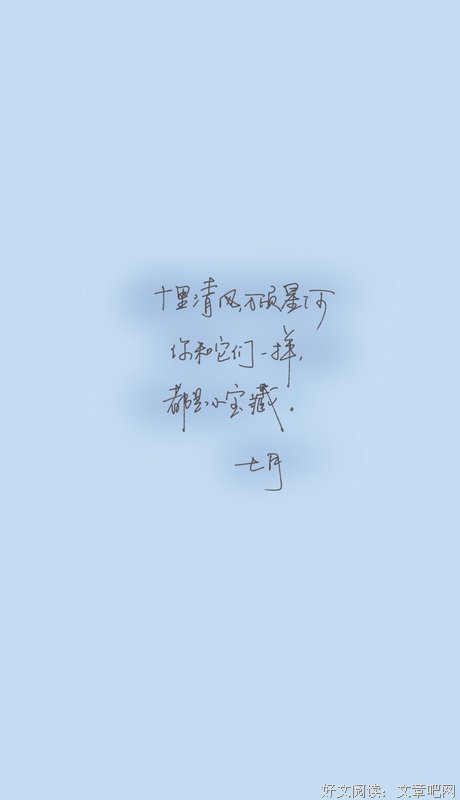 十里清风,万顷星河
你和它们一样,
都是小宝藏。
七月
好文阅读：文章吧网